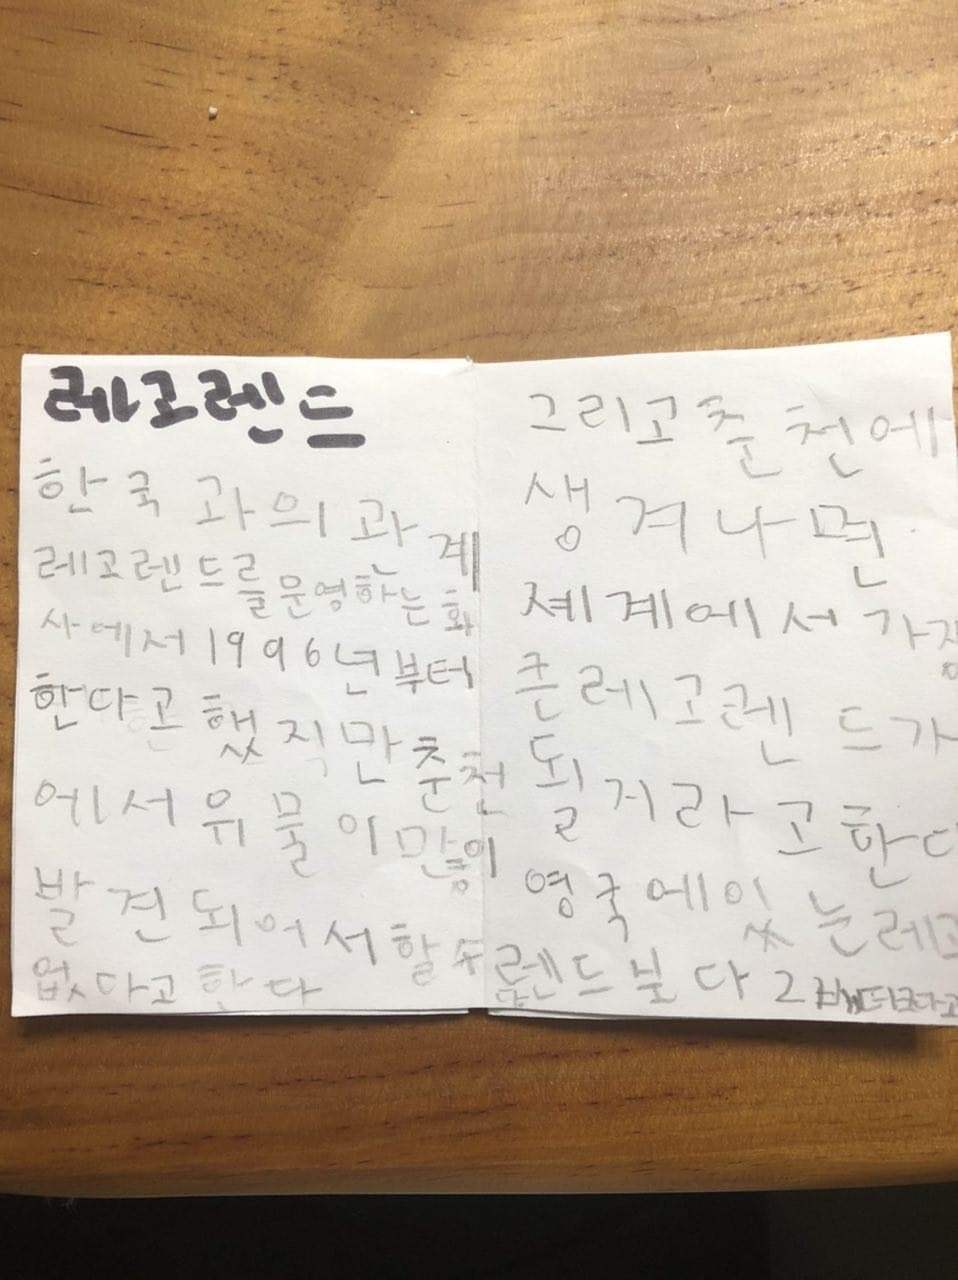 레고렌드
한국과의 관계
레고렌드를 운영하는 화
사에서 1996년부터
한다고 했지만 춘천
에서 유물이 많이
발견되어서 할 수
없다고 한다
그리고 춘천에
생겨나면
제계에서 가장
큰 레고렌드가
될거라고 한다
영국에있는 레고
렌드붇다 2배